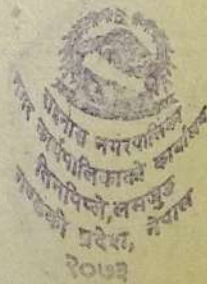 राईनास नगरपालिका
नगर कार्यपालिकाको कार्यालय
तिनपिप्ले,लमजुङ
गण्डकी प्रदेश, नेपाल
२०७३